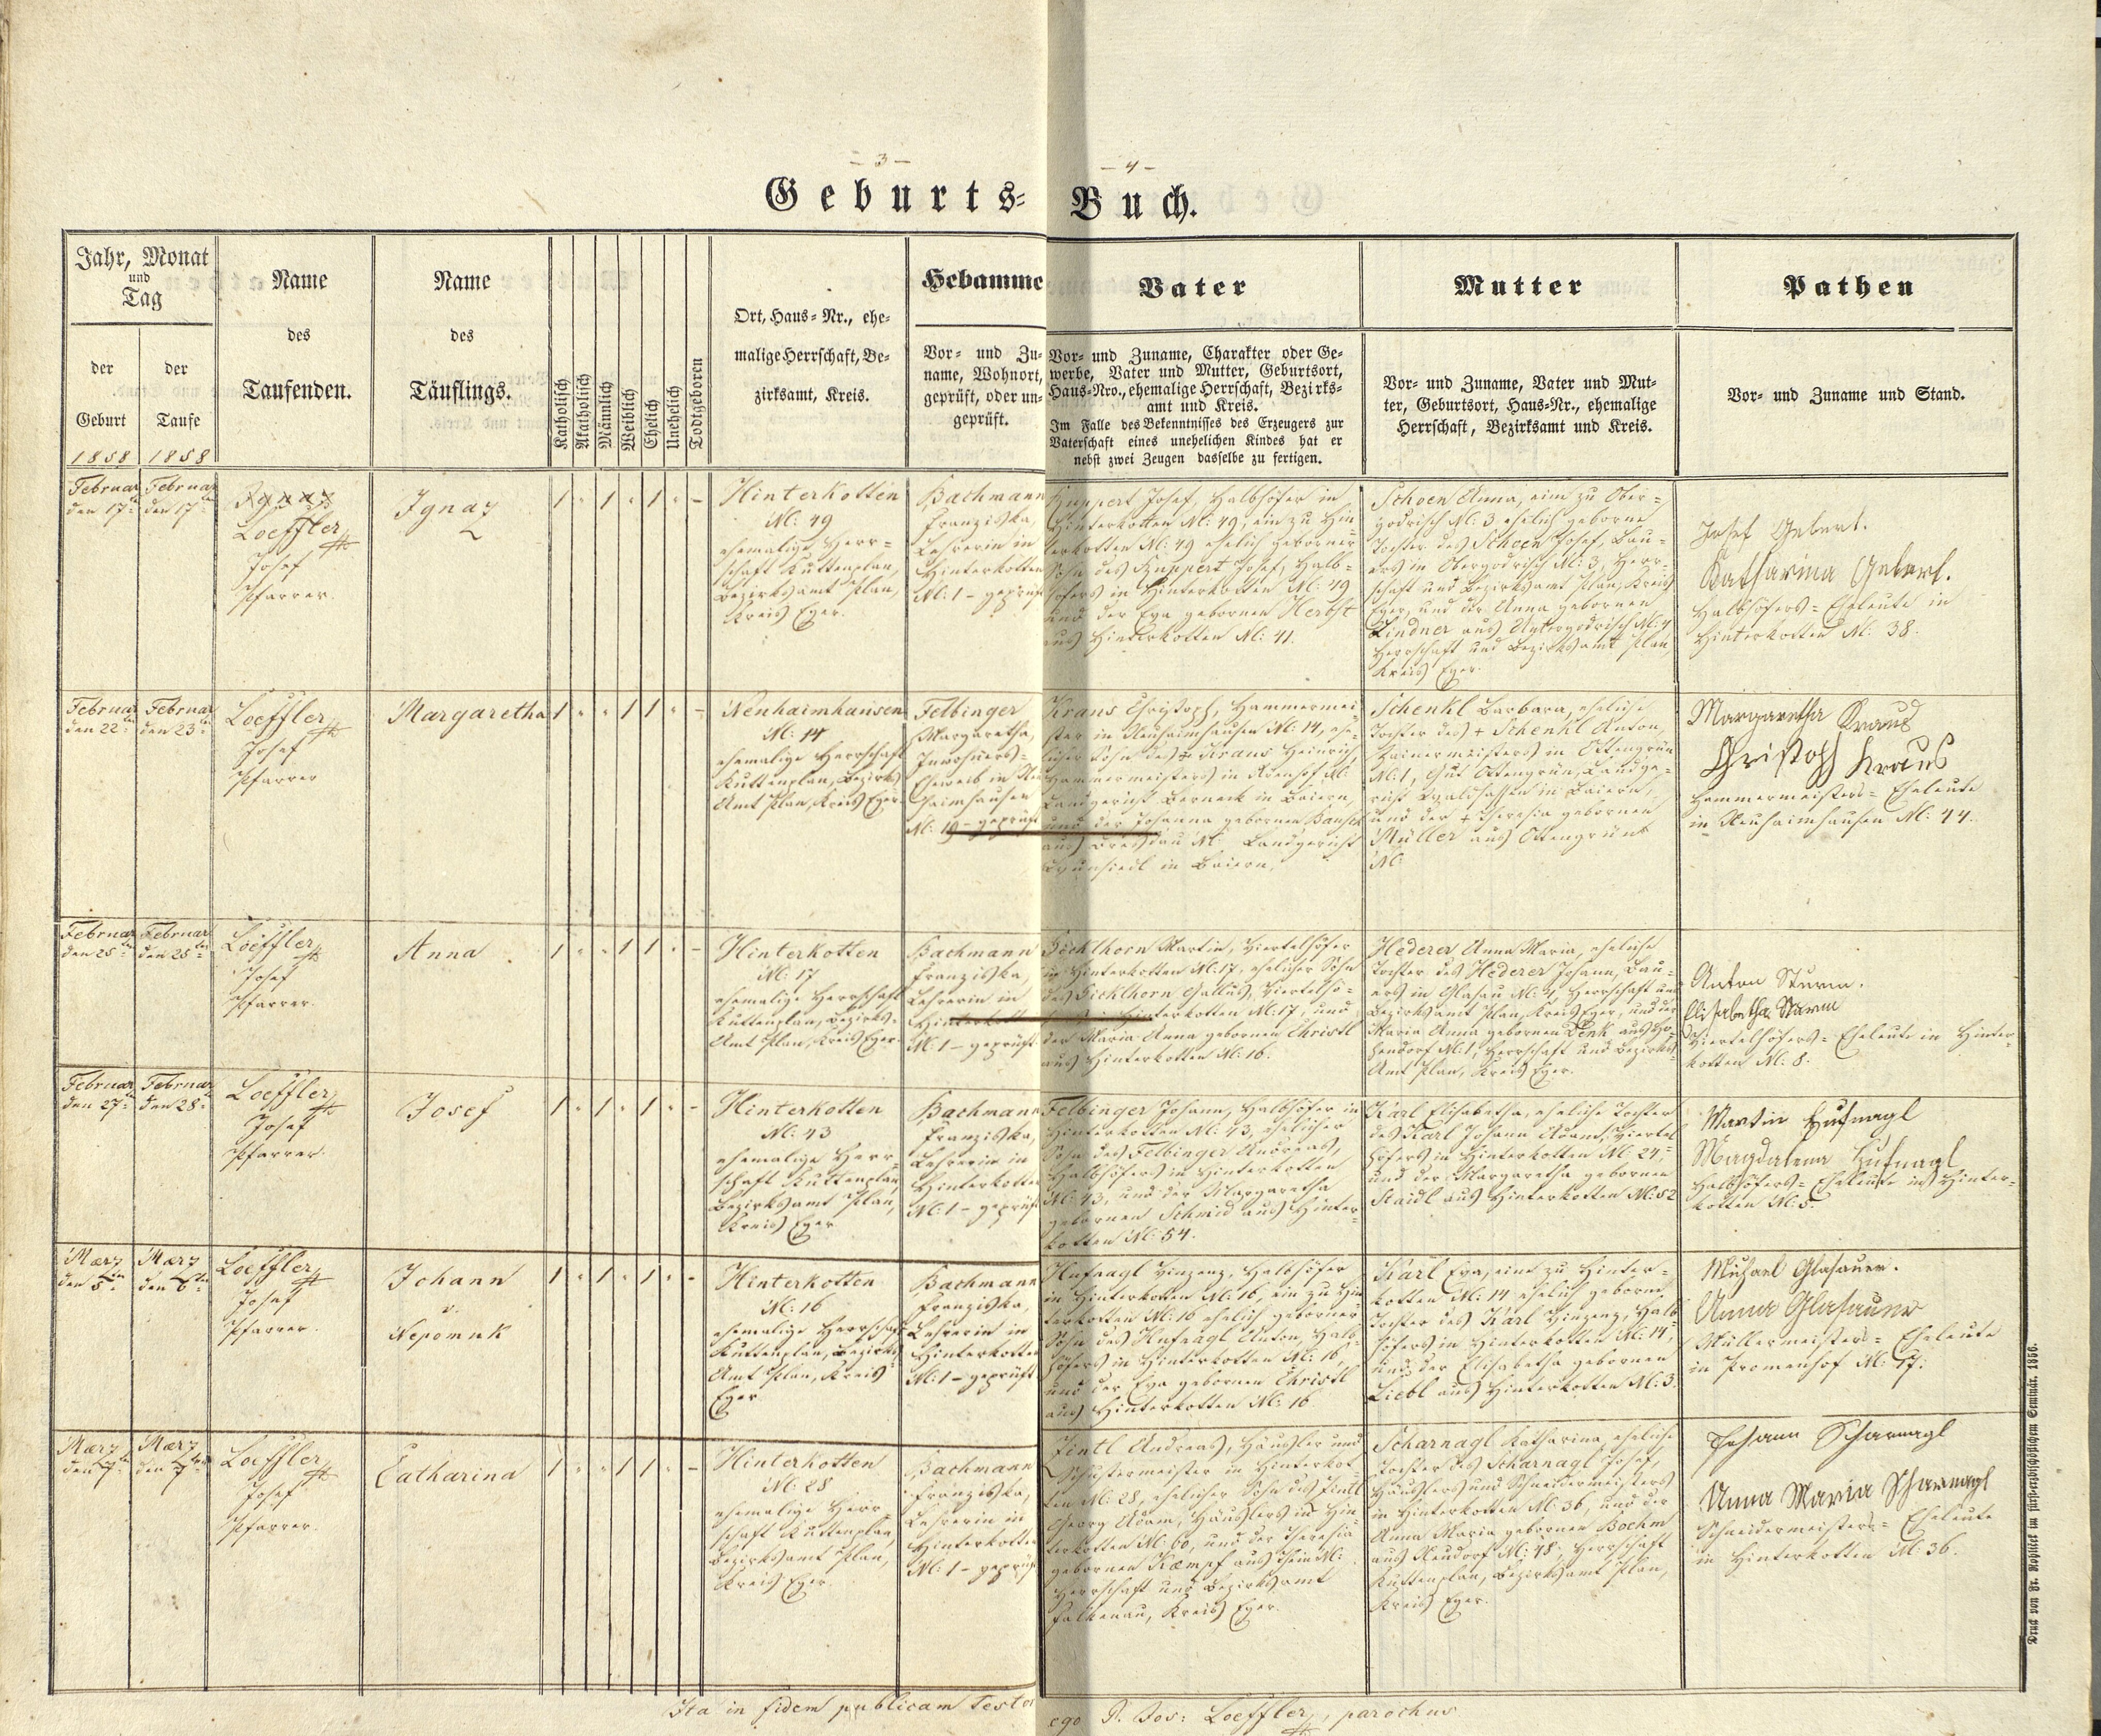 — 3 —
— 4 —
Geburts=
Buch.
Jahr, Monat
und
Tag
der
Geburt
1858
der
Taufe
1858
Name
des
Taufenden.
Name
des
Täuflings.
Katholisch
Akatholisch
Männlich
Weiblich
Ehelich
Unehelich
Todtgeboren
Ort, Haus=Nr., ehe-
malige Herrschaft, Be-
zirksamt, Kreis.
Hebamme
Vor- und Zu-
name, Wohnort,
geprüft, oder un-
geprüft.
Vater
Vor- und Zuname, Charakter oder Ge-
werbe, Vater und Mutter, Geburtsort,
Haus-Nro., ehemalige Herrschaft, Bezirks-
amt und Kreis.
Im Falle des Bekenntnisses des Erzeugers zur
Vaterschaft eines unehelichen Kindes hat er
nebst zwei Zeugen dasselbe zu fertigen.
Mutter
Vor- und Zuname, Vater und Mut-
ter, Geburtsort, Haus-Nr., ehemalige
Herrschaft, Bezirksamt und Kreis.
Pathen
Vor- und Zuname und Stand.
Februar
den 17ten
Februar
den 17ten
Ignaz
Loeffler
Josef
Pfarrer.
Ignaz
1 - 1 - 1 - -
Hinterkotten
N: 49
ehemalige Herr=
schaft Kuttenplan,
Bezirksamt Plan,
Kreis Eger.
Bachmann
Franziska,
Lehrerin in
Hinterkotten
N: 1 - geprüft
Huppert Josef, Halbhöfer in
Hinterkotten N: 49, ein zu Hin=
terkotten N: 49 ehelich geborner
Sohn des Huppert Josef, Halb=
höfers in Hinterkotten N: 49
und der Eva gebornen Herbst
aus Hinterkotten N: 41.
Schoen Anna, eine zu Ober=
godrisch N: 3 ehelich geborne
Tochter des Schoen Josef, Bau=
ers in Obergodrisch N: 3, Herr=
schaft und Bezirksamt Plan, Kreis
Eger, und der Anna gebornen
Lindner aus Untergodrisch N: 4
Herrschaft und Bezirksamt Plan,
Kreis Eger.
Josef Gebert.
Katharina Gebert.
Halbhöfers=Eheleute in
Hinterkotten N: 38.
Februar
den 22ten
Februar
den 23ten
Loeffler
Josef
Pfarrer
Margaretha
1 - - 1 1 - -
Neuhaimhausen
N: 14
ehemalige Herrschaft
Kuttenplan, Bezirks
Amt Plan, Kreis Eger.
Felbinger
Margaretha,
Inwohners=
Eheweib in Neu
haimhausen
N: 19 - geprüft
Kraus Christoph, Hammermei
ster in Neuhaimhausen N: 14, ehe=
licher Sohn des + Kraus Heinrich,
Hammermeisters in N:
Landgericht Berneck in Baiern,
und der Johanna gebornen
aus N: Landgericht
Wunsiedl in Baiern.
Schenkl Barbara, eheliche
Tochter des + Schenkl Anton,
Zainermeisters in Ottengrün
N: 1, Gut Ottengrün, Landge=
richt Waldsassen in Baiern,
und der + Theresia gebornen
Müller aus Ottengrün
N:
Margaretha Kraus
Christoph Kraus
Hammermeisters=Eheleute
in Neuhaimhausen N: 44.
Februar
den 25ten
Februar
den 25ten
Loeffler
Josef
Pfarrer.
Anna
1 - - 1 1 - -
Hinterkotten
N: 17
ehemalige Herrschaft
Kuttenplan, Bezirks=
Amt Plan, Kreis Eger.
Bachmann
Franziska,
Lehrerin in
Hinterkotten
N: 1 - geprüft
Bicklhorn Martin, Viertelhöfer
in Hinterkotten N: 17, ehelicher Sohn
des Bicklhorn Gallus, Viertelhö=
Hinterkotten N: 17, und
der Maria Anna gebornen Christl
aus Hinterkotten N: 16.
Hederer Anna Maria, eheliche
Tochter des Hederer Johann, Bau=
ers in Glasau N: 4, Herrschaft und
Bezirksamt Plan, Kreis Eger, und der
Maria Anna gebornen Denk aus Ho=
hendorf N: 1, Herrschaft und Bezirks=
Amt Plan, Kreis Eger.
Anton Sturm.
Elisabetha Sturm
Viertelhöfers=Eheleute in Hinter=
kotten N: 8.
Februar
den 27ten
Februar
den 28ten
Loeffler
Josef
Pfarrer.
Josef
1 - 1 - 1 - -
Hinterkotten
N: 43
ehemalige Herr=
schaft Kuttenplan,
Bezirksamt Plan,
Kreis Eger
Bachmann
Franziska,
Lehrerin in
Hinterkotten
N: 1 - geprüft
Felbinger Johann, Halbhöfer in
Hinterkotten N: 43, ehelicher
Sohn des Felbinger Andreas,
Halbhöfers in Hinterkotten
N: 43, und der Margaretha
gebornen Schmid aus Hinter=
kotten N: 54.
Karl Elisabetha, eheliche Tochter
des Karl Johann Adam, Viertel
höfers in Hinterkotten N: 24,
und der Margaretha gebornen
Staidl aus Hinterkotten N: 52
Martin Hufnagl
Magdalena Hufnagl
Halbhöfers=Eheleute in Hinter=
kotten N: 5.
Maerz
den 5ten
Maerz
den 6ten
Loeffler
Josef
Pfarrer.
Johann
v.
Nepomuk
1 - 1 - 1 - -
Hinterkotten
N: 16
ehemalige Herrschaft
Kuttenplan, Bezirks
Amt Plan, Kreis
Eger.
Bachmann
Franziska,
Lehrerin in
Hinterkotten
N: 1 - geprüft
Hufnagl Vinzenz, Halbhöfer
in Hinterkotten N: 16, ein zu Hin
terkotten N: 16 ehelich geborner
Sohn des Hufnagl Anton, Halb=
höfers in Hinterkotten N: 16,
und der Eva gebornen Christl
aus Hinterkotten N: 16
Karl Eva, eine zu Hinter=
kotten N: 14 ehelich geborne
Tochter des Karl Vinzenz, Halb
höfers in Hinterkotten N: 14,
und der Elisabetha gebornen
Liebl aus Hinterkotten N: 3.
Michael Glasauer.
Anna Glasauer
Müllermeisters=Eheleute
in Promenhof N: 17.
Maerz
den 7ten
Maerz
den 7ten
Loeffler
Josef
Pfarrer.
Catharina
1 - - 1 1 - -
Hinterkotten
N: 28
ehemalige Herr
schaft Kuttenplan,
Bezirksamt Plan,
Kreis Eger
Bachmann
Franziska,
Lehrerin in
Hinterkotten
N: 1 - geprüft
Zintl Andreas, Häusler und
Schustermeister in Hinterkot=
ten N: 28, ehelicher Sohn des Zintl
Georg Adam, Häuslers in Hin=
terkotten N: 60, und der Theresia
gebornen Kaempf aus N:
Herrschaft und Bezirksamt
Falkenau, Kreis Eger.
Scharnagl Katharina eheliche
Tochter des Scharnagl Josef,
Häuslers und Schneidermeisters
in Hinterkotten N: 36, und der
Anna Maria gebornen Boehm
aus Neudorf N: 48, Herrschaft
Kuttenplan, Bezirksamt Plan,
Kreis Eger.
Johann Scharnagl
Anna Maria Scharnagl
Schneidermeisters=Eheleute
in Hinterkotten N: 36.
Ita in fidem publicam testor
ego P. Jos: Loeffler, parochus
Druck von Fr. Rohliček im fürsterzbischöflichem Seminär. 1856.